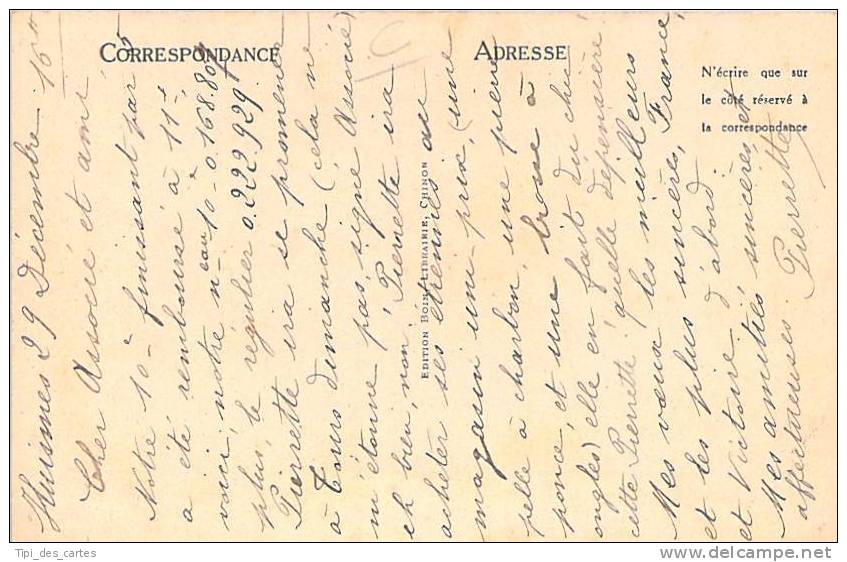 CORRESPONDANCE
ADRESSE
N'écrire que sur
le côté réservé à
la correspondance
EDITION BOIN, LIBRAIRIE, CHINON
Huismes 29 Décembre
Cher Associé et ami
Notre 10e finissant par 5
a été remboursé à 11f,
voici notre n eau 10e 0.168.807
plus, le régulier 0.222.929
Pierrette ira se promener
à Tours dimanche (cela ne
m'étonne pas, signé Associé)
eh bien, non, Pierrette ira
acheter ses étrennes au
magasin uni-prix, (une
pelle à charbon, une pierre
ponce, et une brosse à
ongles) elle en fait du chic
cette Pierrette, qu'elle dépensière
Mes voeux les meilleurs
et les plus sincères, France,
et Victoire d'abord
Mes amitiés sincères, et
affectueuses Pierrette
Tipi_des_cartes
www.delcampe.net